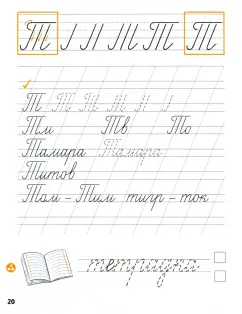 Т Т Т Т
Т Т Т Т
Тм Тв То
Тамара Тамара
Титов
Том – Тим тигр – ток
тетрадка
20